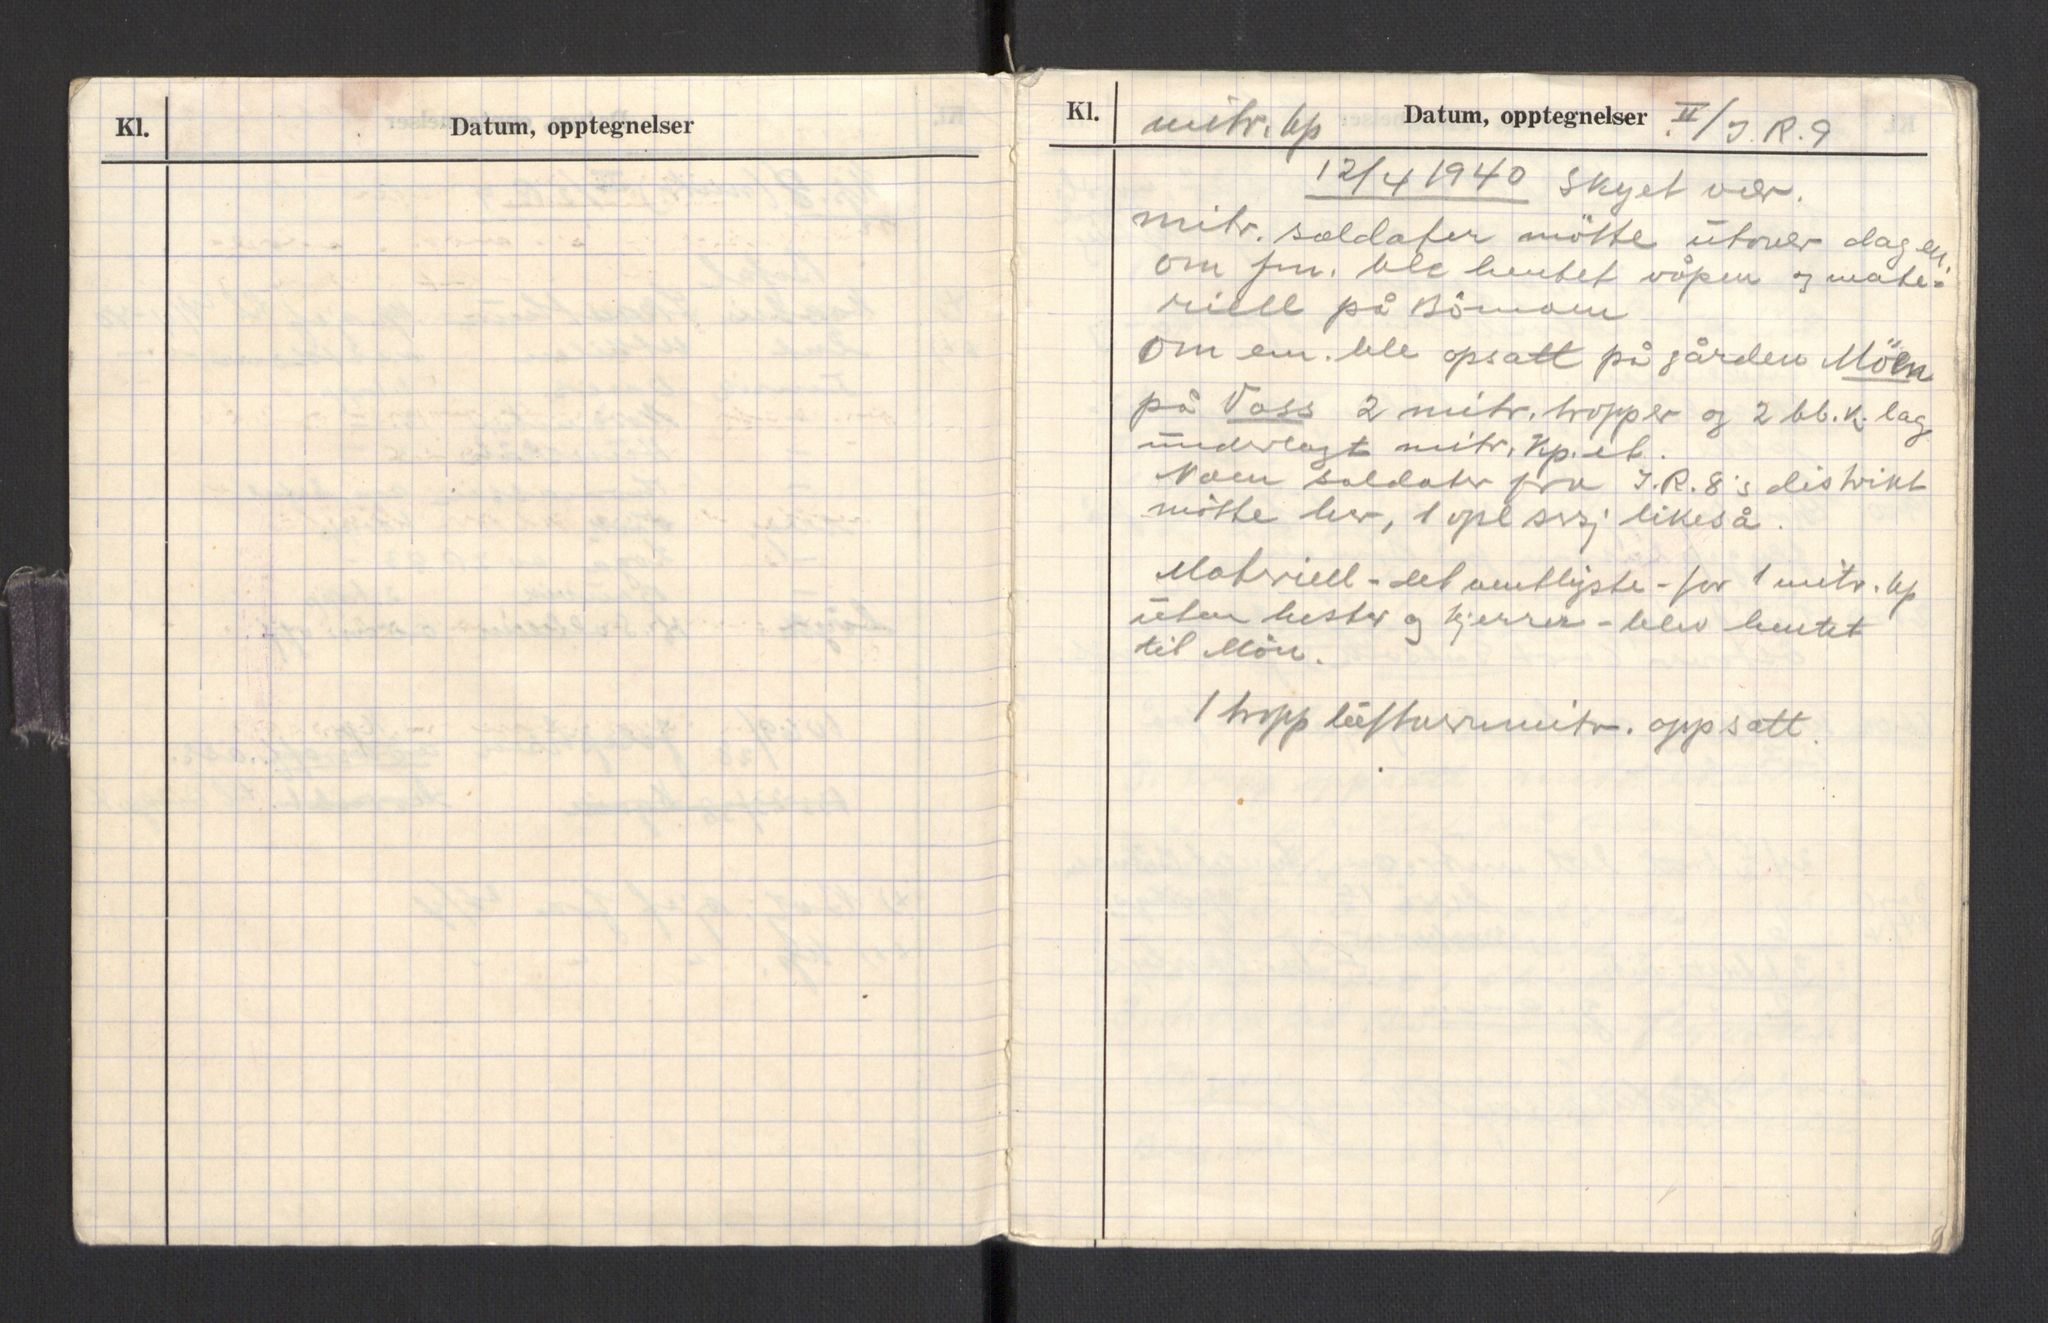 Kl. Datum, opptegnelser
Kl. mitr. kp Datum, opptegnelser II/J.R.9
12/4 1940 Skyet vær.
Mitr. soldater mötte utover dagen.
Om fm. ble hentet våpen og mate-
riell på Bömoen
Om em. ble opsatt på gården Möen
på Voss 2 mitr. tropper og 2 bb.k. lag
underlagt mitr. kp. et.
Noen soldater fra J.R. 8's distrikt
mötte her, 1 opl sersj likeså.
Materiell - det nentligste - for 1 mitr. kp
uten hester og kjerrer - blev hentet
til Möen.
1 tropp luftvernmitr. oppsatt.